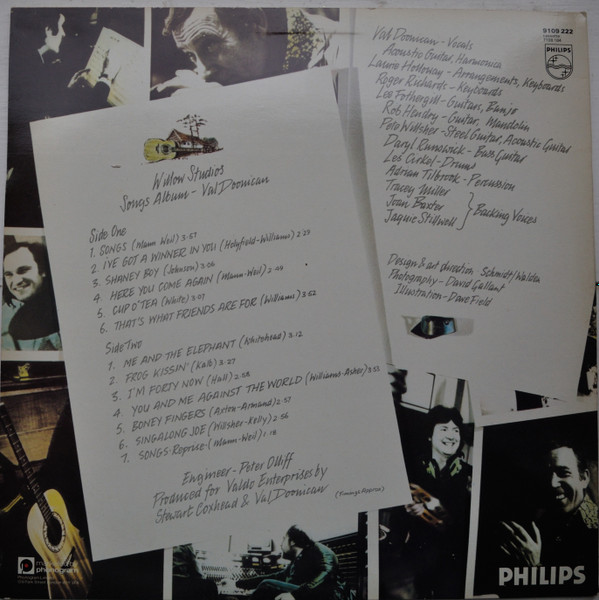 9109 222
PHILIPS
Val Doonican - Vocals
Acoustic Guitar, Harmonica
Laurie Holloway - Arrangements, Keyboards
Roger Richards - Keyboards
Lee Fothergill - Guitars, Banjo
Rob Hendry - Guitar, Mandolin
Pete Willsher - Steel Guitar, Acoustic Guitar
Daryl Runswick - Bass Guitar
Les Cirkel - Drums
Adrian Tilbrook - Percussion
Tracey Miller
Joan Baxter
Jaquie Stillwell } Backing Voices
Design & art direction Schmidt/Walden
Photography - David Gallant
Illustration - Dave Field
Willow Studios
Songs Album - Val Doonican
Side One
1. SONGS (Mann Weil) 3:57
2. I'VE GOT A WINNER IN YOU (Holyfield-Williams) 2:29
3. SHANEY BOY (Johnson) 3:06
4. HERE YOU COME AGAIN (Mann-Weil)
5. CUP O'TEA (White) 3:07
6. THAT'S WHAT FRIENDS ARE FOR (Williams) 3:52
Side Two
1. ME AND THE ELEPHANT (Whitehead) 3:12
2. FROG KISSIN' (Kalb) 3:27
3. I'M FORTY NOW (Hall) 2:58
4. YOU AND ME AGAINST THE WORLD (Williams-Asher)
5. BONEY FINGERS (Axton-Armand) 2:57
6. SINGALONG JOE (Willsher-Kelly) 2:56
7. SONGS-Reprise-(Mann-Weil) 1:18
Engineer - Peter Olliff
Produced for Valdo Enterprises by
Stewart Coxhead & Val Doonican (Timings Approx)
phonogram
PHILIPS